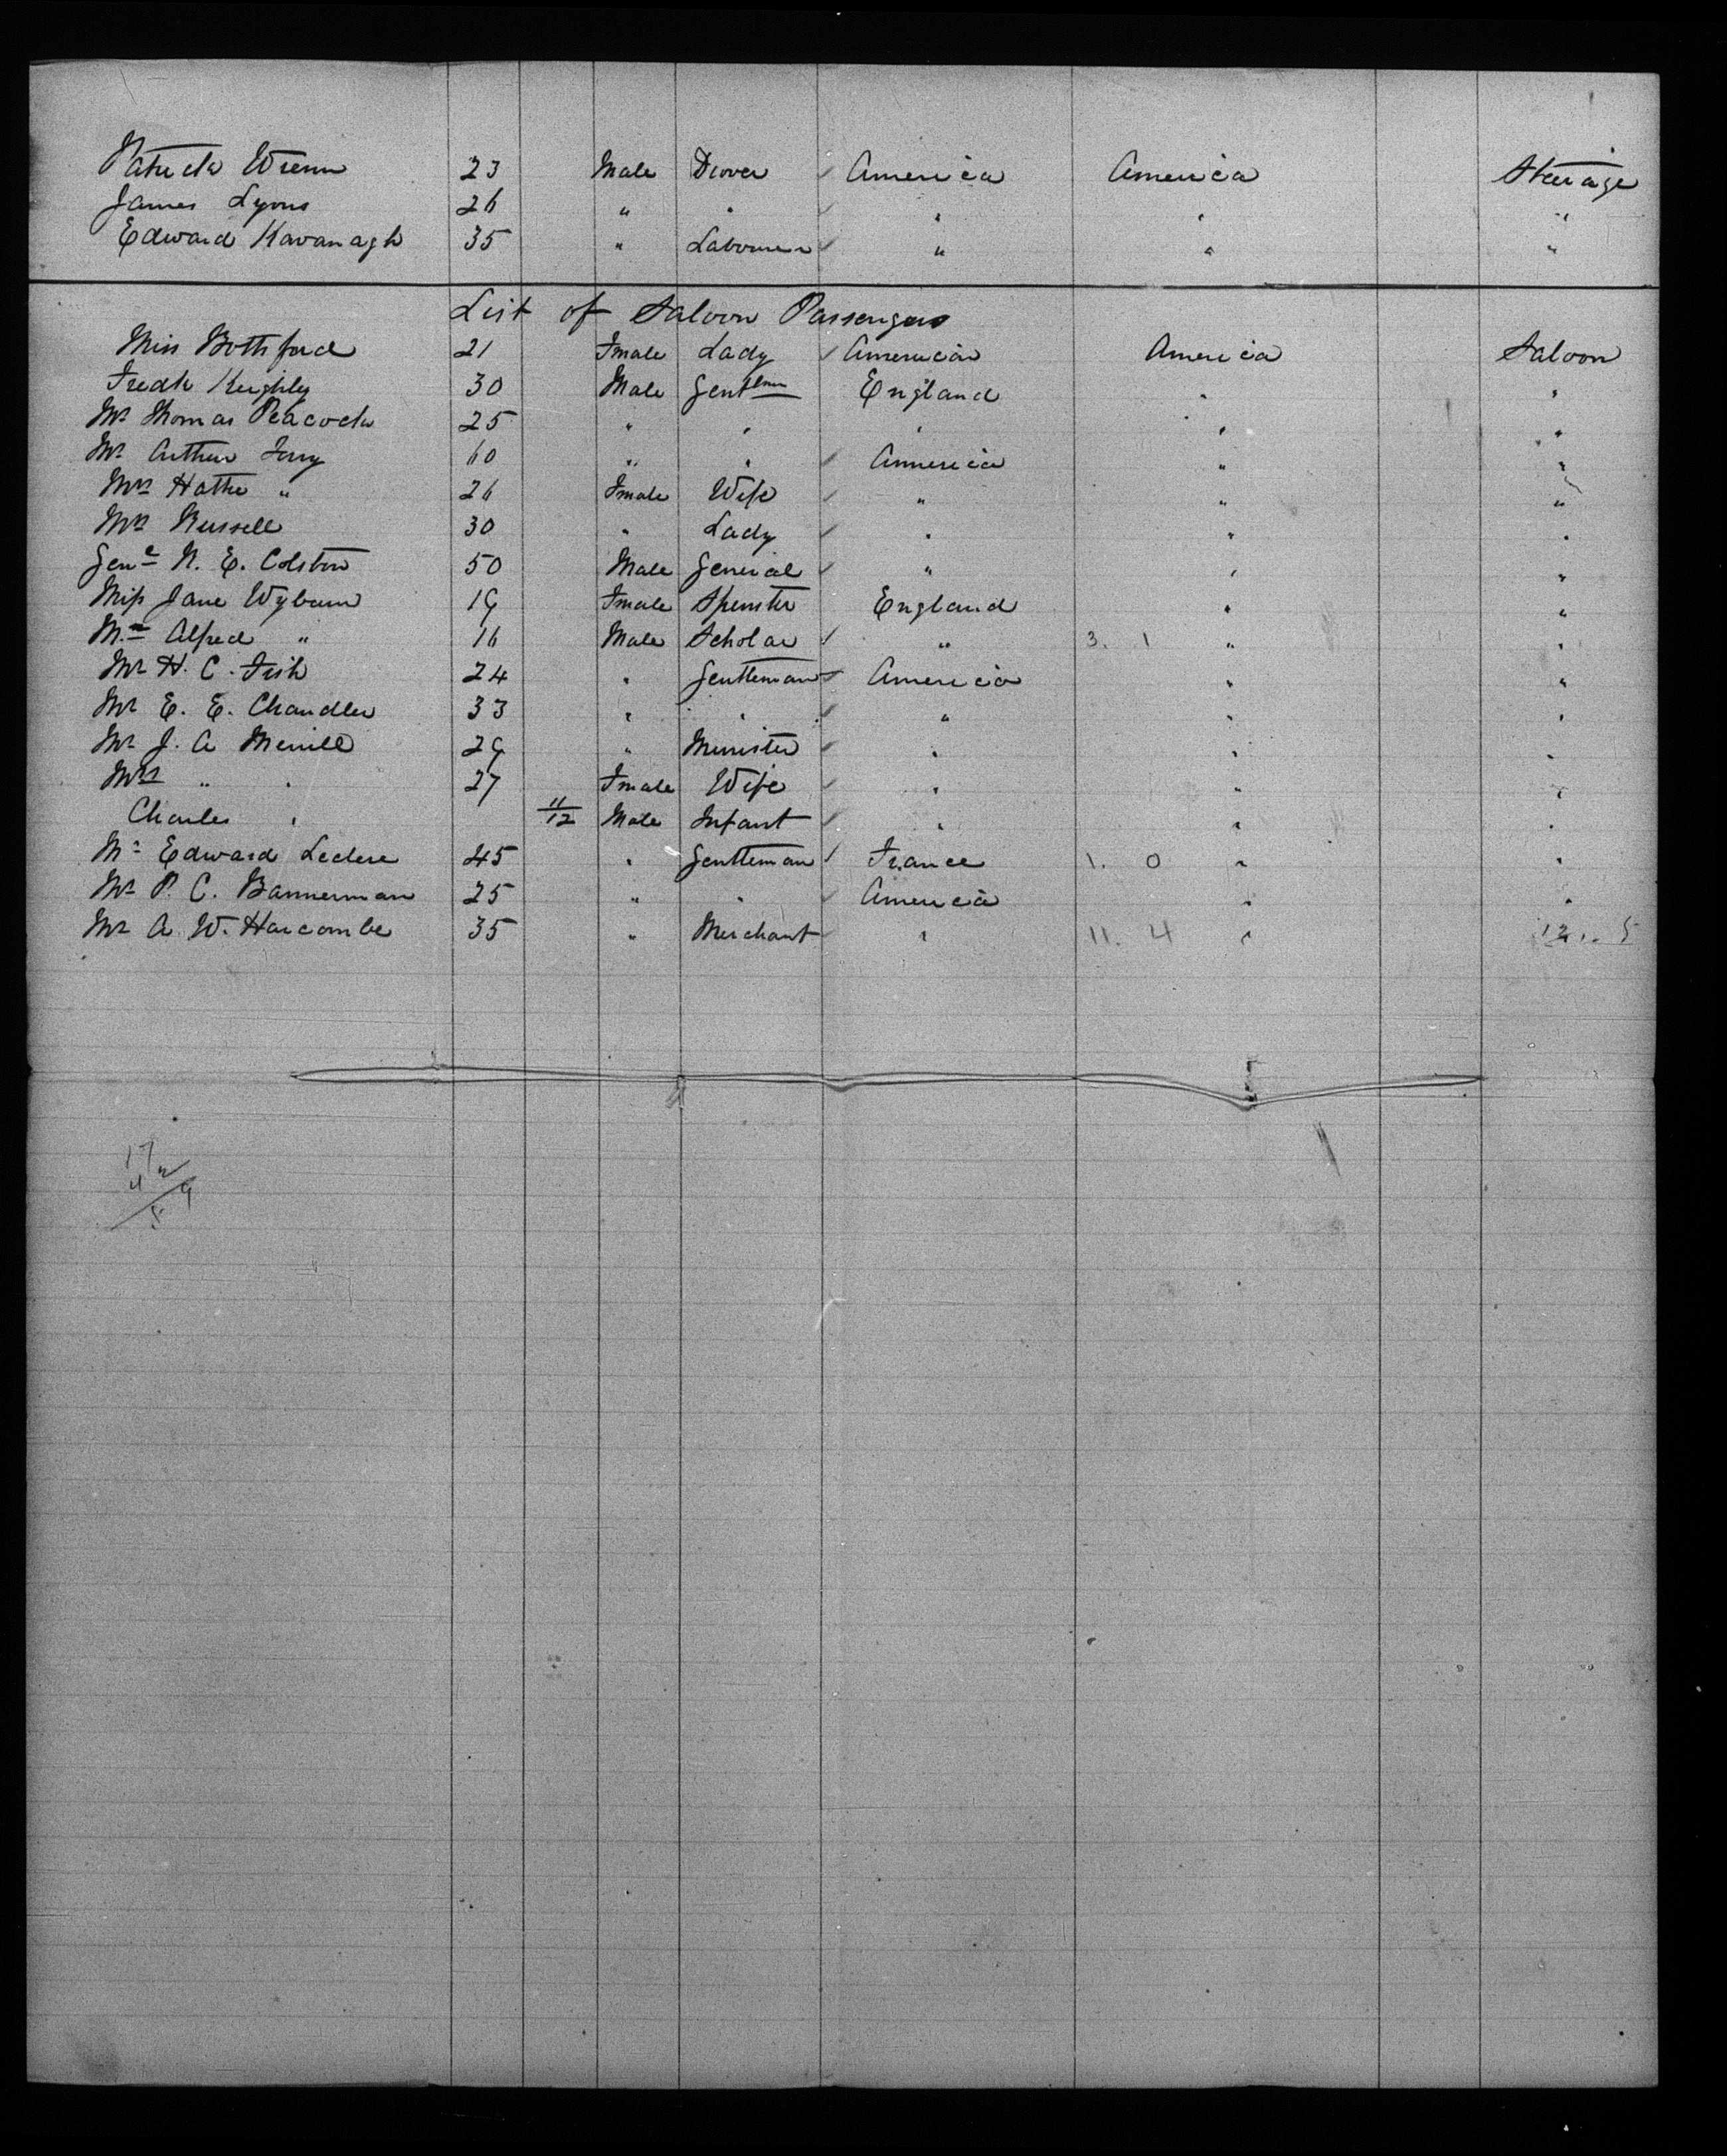 Patrick Wrenn 23 Male Drover America America Steerage
James Lyons 26 " " " " "
Edward Kavanagh 35 " Labourer " " "
List of Saloon Passengers
Miss Bottsford 21 Fmale Lady American America Saloon
Fredk Keighly 30 Male Gentlmn England " "
Mr Thomas Peacock 25 " " " " "
Mr Arthur 60 " " America " "
Mrs Hattie " 26 Fmale Wife " " "
Mrs Russell 30 " Lady " " "
Genl R. E. Colston 50 Male General " " "
Miss Jane Wyburn 19 Fmale Spinster England " "
Mr Alfred " 16 Male Scholar " 3. 1 " "
Mr H. C. Fish 24 " Gentleman America " "
Mr E. E. Chandler 33 " " " " "
Mr J. A Merrill 29 " Minister " " "
Mrs " " 27 Fmale Wife " " "
Charles " 11/12 Male Infant " " "
Mr Edward Leclere 45 " Gentleman France 1. 0 " "
Mr P. C. Bannerman 25 " " America " "
Mr A W. Harcombe 35 " Merchant " 11. 4 " 12. 5
17